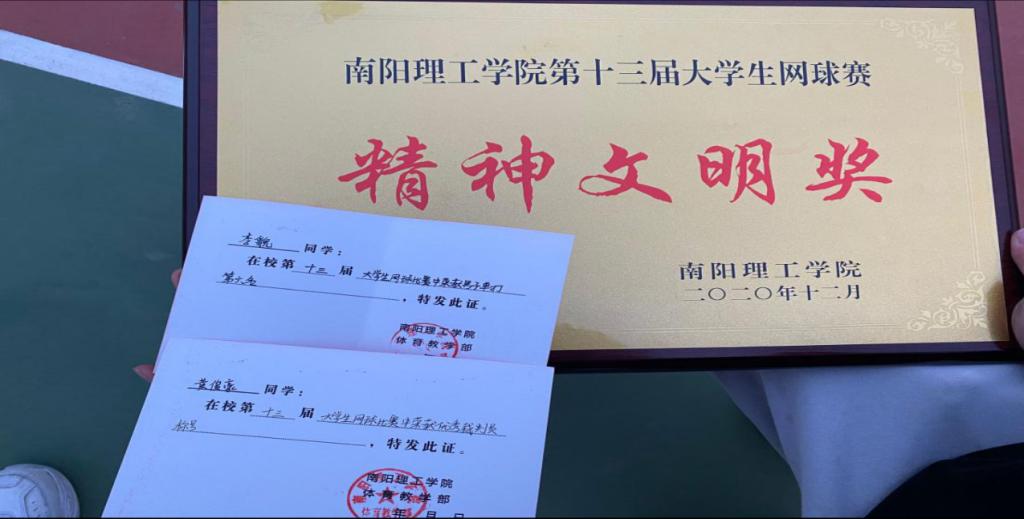 南阳理工学院第十三届大学生网球赛
精神文明奖
南阳理工学院
二〇二〇年十二月
李巍 同学：
在校第 十三 届 大学生网球比赛中荣获男子单打
第六名 ，特发此证。
南阳理工学院
体育教学部
黄俊豪 同学：
在校第 十三 届 大学生网球比赛中荣获优秀裁判长
称号 ，特发此证。
南阳理工学院
体育教学部
年 月 日